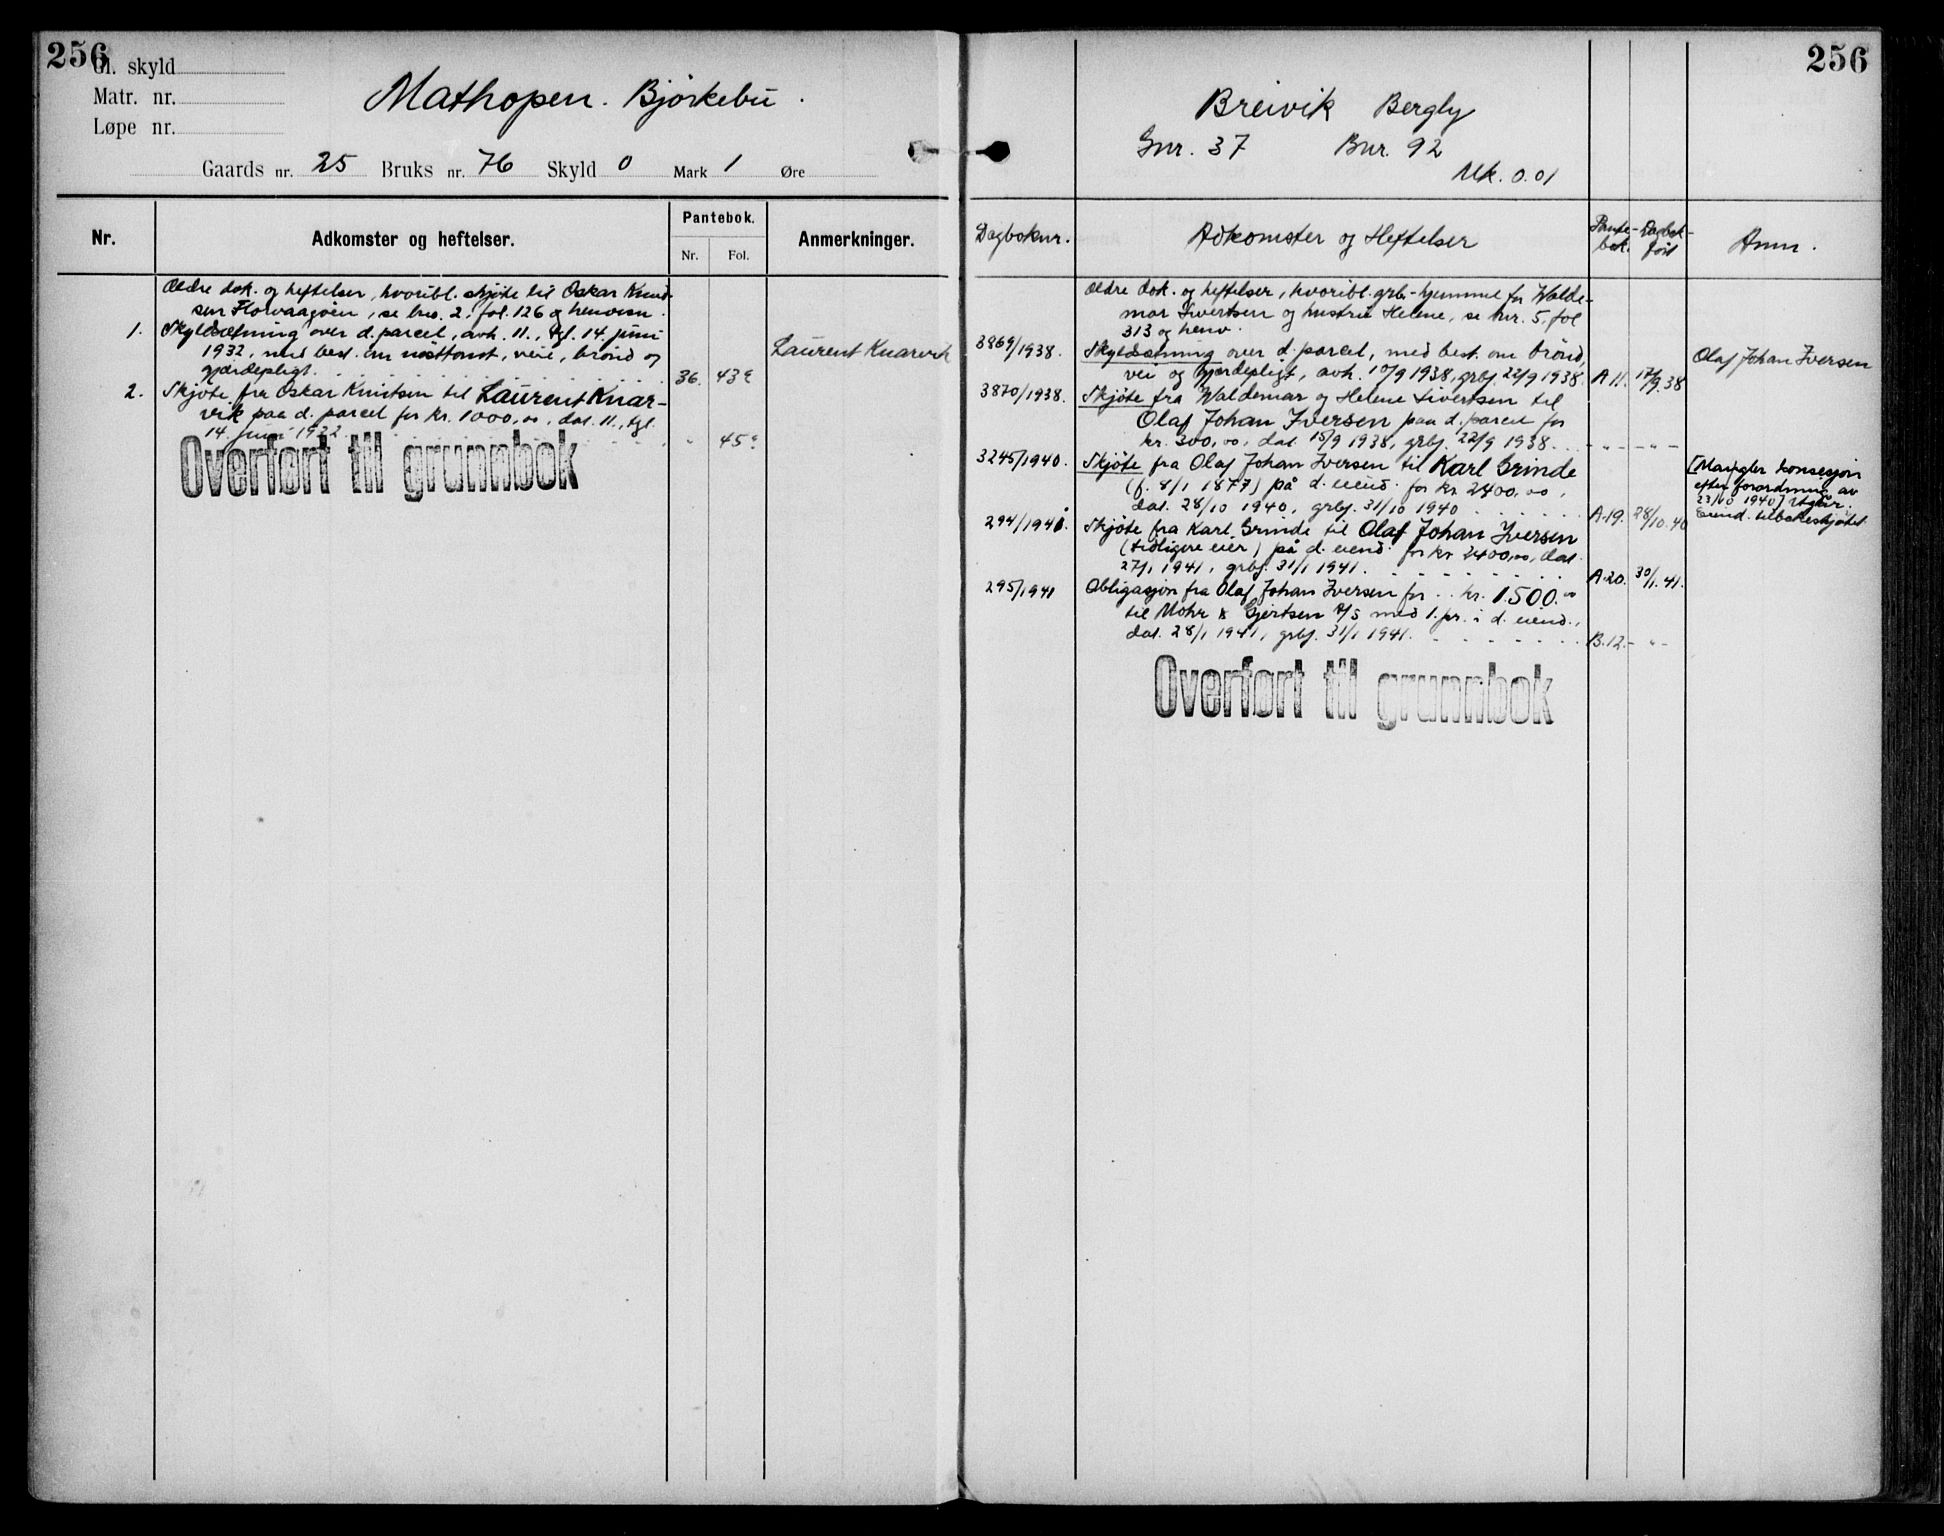 256
Gl. skyld
Matr. nr.
Løpe nr.
Mathopen. Bjørkebu.
Gaards nr. 25 Bruks nr. 76 Skyld 0 Mark 1 Øre
Nr.
Adkomster og heftelser.
Pantebok.
Nr. Fol.
Anmerkninger.
Ældre dok. og heftelser, hvoribl. skjøte til Oskar Knud-
sen Florvaagøen, se bnr. 2, fol. 126 og henvisn.
1. Skyldsætning over d. parcel, avh. 11., tgl. 14. juni
1932, med best. om nosttomt, veie, brønd og
gjærdepligt. 36. 43
Laurent Knarvik
2. Skjøte fra Oskar Knutsen til Laurent Knar-
vik paa d. parcel for kr. 1000,00, dat. 11., tgl.
14. juni 1932. " 45
Overført til grunnbok
256
Breivik Bergly
Gnr. 37 Bnr. 92
Mk. 0.01
Dagboknr.
Adkomster og Heftelser
Pante-
bok.
Dagbok-
ført
Anm.
Ældre dok. og heftelser, hvoribl. grb.-hjemmel for Walde-
mar Sivertsen og hustru Helene, se bnr. 5, fol
313 og henv.
3869/1938. Skyldsætning over d. parcel, med best. om brønd,
vei og gjærdepligt, avh. 10/9 1938, grbf. 22/9 1938. A 11. 17/9.38
Olaf Johan Iversen
3870/1938. Skjøte fra Waldemar og Helene Sivertsen til
Olaf Johan Iversen paa d. parcel for
kr. 300,00, dat 15/9 1938, grbf. 22/9 1938. - " - - " -
3245/1940. Skjøte fra Olaf Johan Iversen til Karl Grinde
(f. 8/1 1877) på d. eiend. for kr. 2400,00,
dat. 28/10 1940, grbf. 31/10 1940 A.19. 28/10.40
[Mangler konsesjon
efter forordning av
23/10 1940] Utgår.
Eiend. tilbakeskjøtet
294/1941. Skjøte fra Karl Grinde til Olaf Johan Iversen
(tidligere eier) på d. eiend. for kr 2400,00, dat.
27/1 1941, grbf. 31/1 1941. A.20. 30/1.41.
295/1941 Obligasjon fra Olaf Johan Iversen for .. kr. 1.500.00
til Mohr & Gjertsen A/S med 1. pr. i d. eiend.,
dat. 28/1 1941, grbf. 31/1 1941. B.12. - " -
Overført til grunnbok